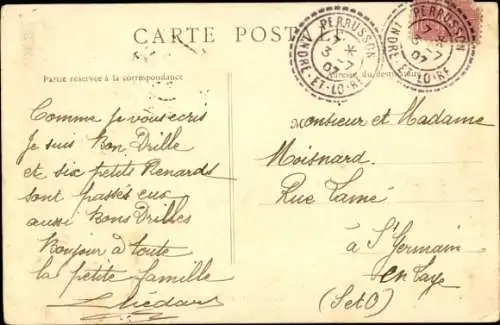 CARTE POSTALE
Partie réservée à la correspondance
Adresse du destinataire
PERRUSSON
7 *
3 -7
07
INDRE-ET-LOIRE
PERRUSSON
7 *
3 -7
07
INDRE-ET-LOIRE
Comme je vous ecris
Je suis bon Drille
et six petits Renards
sont passés eux
aussi bons Drilles
Bonjour à toute
la petite famille
Monsieur et Madame
Moisnard
Rue
à St Germain
en Laye
(S et O)